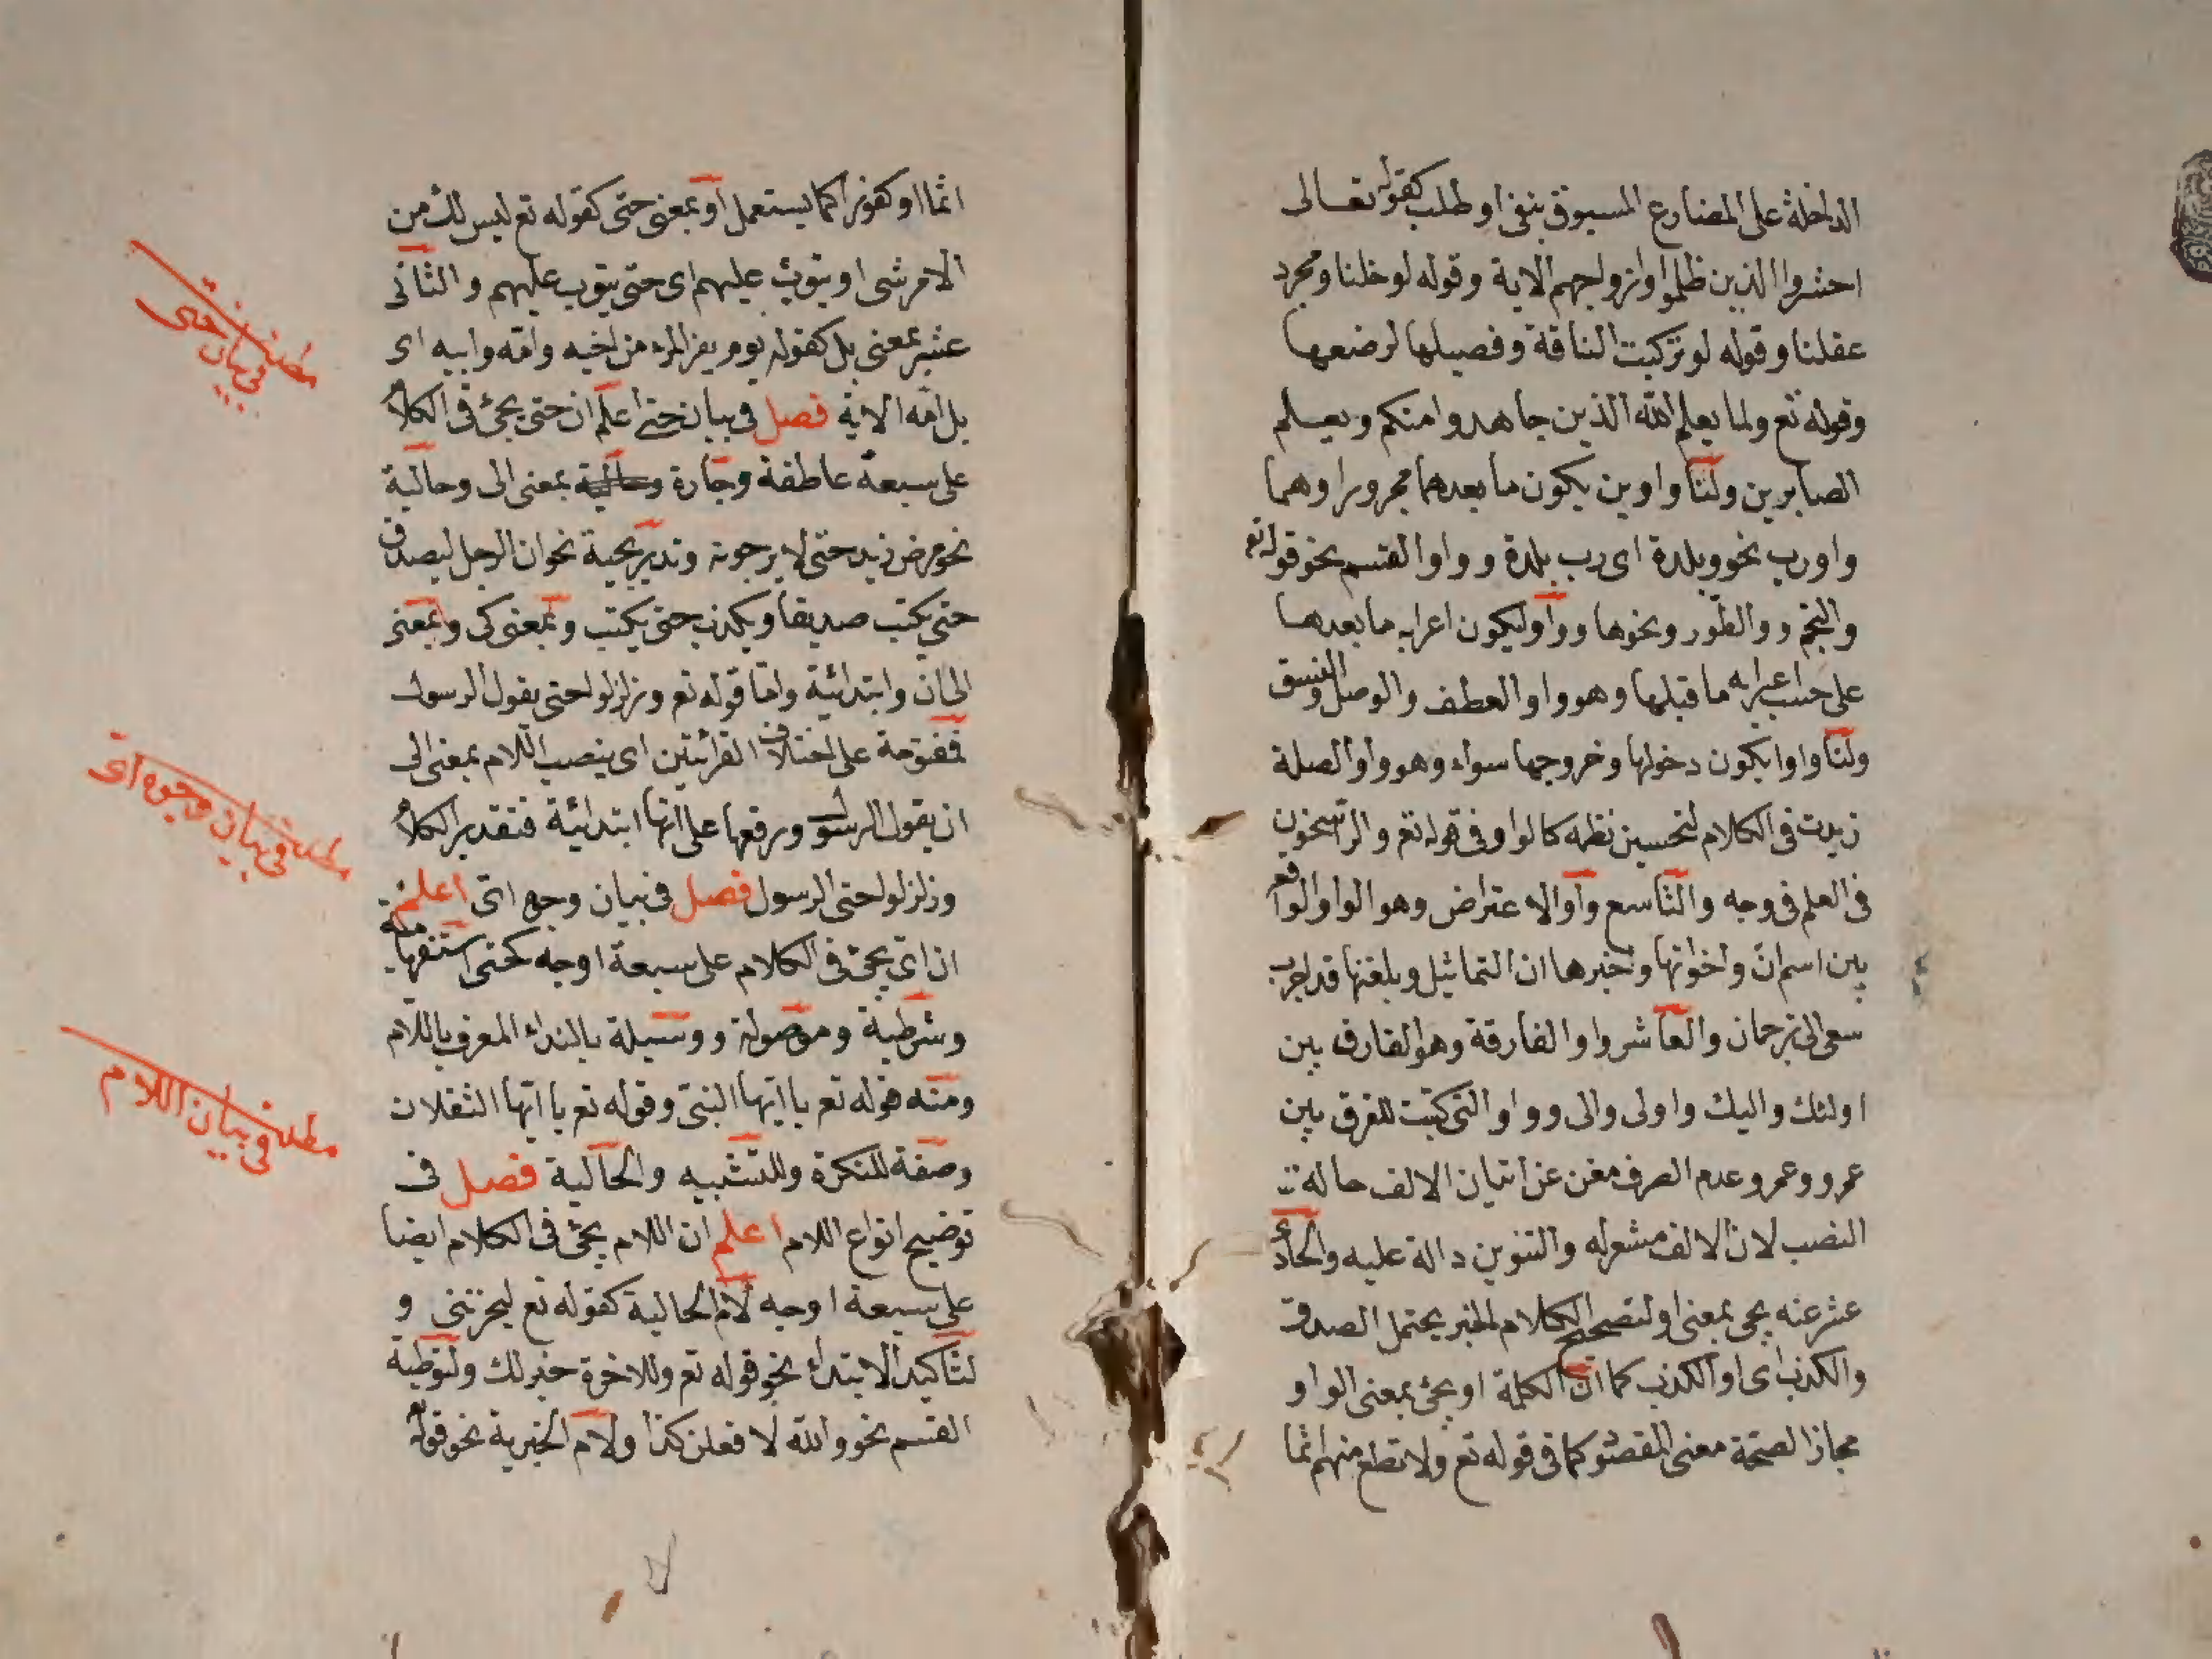 الداخلة على المضارع المسبوق بنفى او طلب كقوله تعالى
احشروا الذين ظلموا وازواجهم الاية وقوله لو خلنا ومجرد
عقلنا وقوله لو تركبت الناقة وفصيلها لرضعها
وقوله تع ولما يعلم الله الذين جاهدوا منكم ويعلم
الصابرين ولنا واوين يكون ما بعدهما مجرورا وهما
واو رب نحو وبلدة اى رب بلدة و واوا القسم نحو قوله تع
والنجم و والطور ونحوها و واو ليكون اعرابه ما بعدها
على حسب اعرابه ما قبلها وهو واو العطف والوصل والنسق
ولنا واوا يكون دخولها وخروجها سواء وهو واو الصلة
زيدت فى الكلام لتحسين نظمه كالواو فى قوله تع والراسخون
فى العلم فى وجه والتاسع واو الاعتراض وهو الواو الواقع
بين اسم ان واخواتها وخبرها ان التماثيل وبلغتها قد احرب
سعى الى ترجمان والعاشر واو الفارقة وهو الفارق بين
اولئك واليك واولى والى و واو التى كتبت للفرق بين
عمرو وعمر وعدم الصرف مغن عن اتيان الالف حالة
النصب لان الالف مشعر له والتنوين دالة عليه والحادى
عشر عنه يجى بمعنى او لتصحيح الكلام الخبر يحتمل الصدق
والكذب اى او الكذب كما ان الكلمة او يجئ بمعنى الواو
مجاز الصحة معنى المقصو كما فى قوله تع ولا تطع منهم اثما
اثما او كفورا كما يستعمل او بمعنى حتى كقوله تع ليس لك من
الامر شى او يتوب عليهم اى حتى يتوب عليهم والثانى
عشر بمعنى بل كقوله يوم يفر المرء من اخيه وامه وابيه اى
بل امه الاية فصل فى بيان حتى اعلم ان حتى يجئ فى الكلام
على سبعة عاطفة وجارة وحالية بمعنى الى وحالية
نحو مرض زيد حتى لا يرجونه وتدريجية نحو ان الرجل ليصدق
حتى يكتب صديقا ويكذب حتى يكتب وبمعنى كى وبمعنى
الى ان وابتدائية واما قوله تع وزلزلوا حتى يقول الرسول
فمفتوحة على اختلاف القرائتين اى ينصب اللام بمعنى الى
ان يقول الرسول ورفعها على انها ابتدائية فتقدير الكلام
وزلزلوا حتى الرسول فصل فى بيان وجوه اى اعلم
ان اى يجئ فى الكلام على سبعة اوجه كحتى استفهامية
وشرطية وموصولة و وسيلة بالنداء المعرف باللام
ومنه قوله تع يا ايها النبى وقوله تع يا ايها الثقلان
وصفة للنكرة وللتشبيه والحالية فصل فى
توضيح انواع اللام اعلم ان اللام يجئ فى الكلام ايضا
على سبعة اوجه لام الحالية كقوله تع ليحزننى و
لتاكيد الابتداء نحو قوله تع وللاخرة خير لك ولتوطية
القسم نحو والله لا فعلن كذا ولام الخبرية نحو قوله
مطلب فى بيان حتى
مطلب فى بيان وجوه اى
مطلب فى بيان اللام